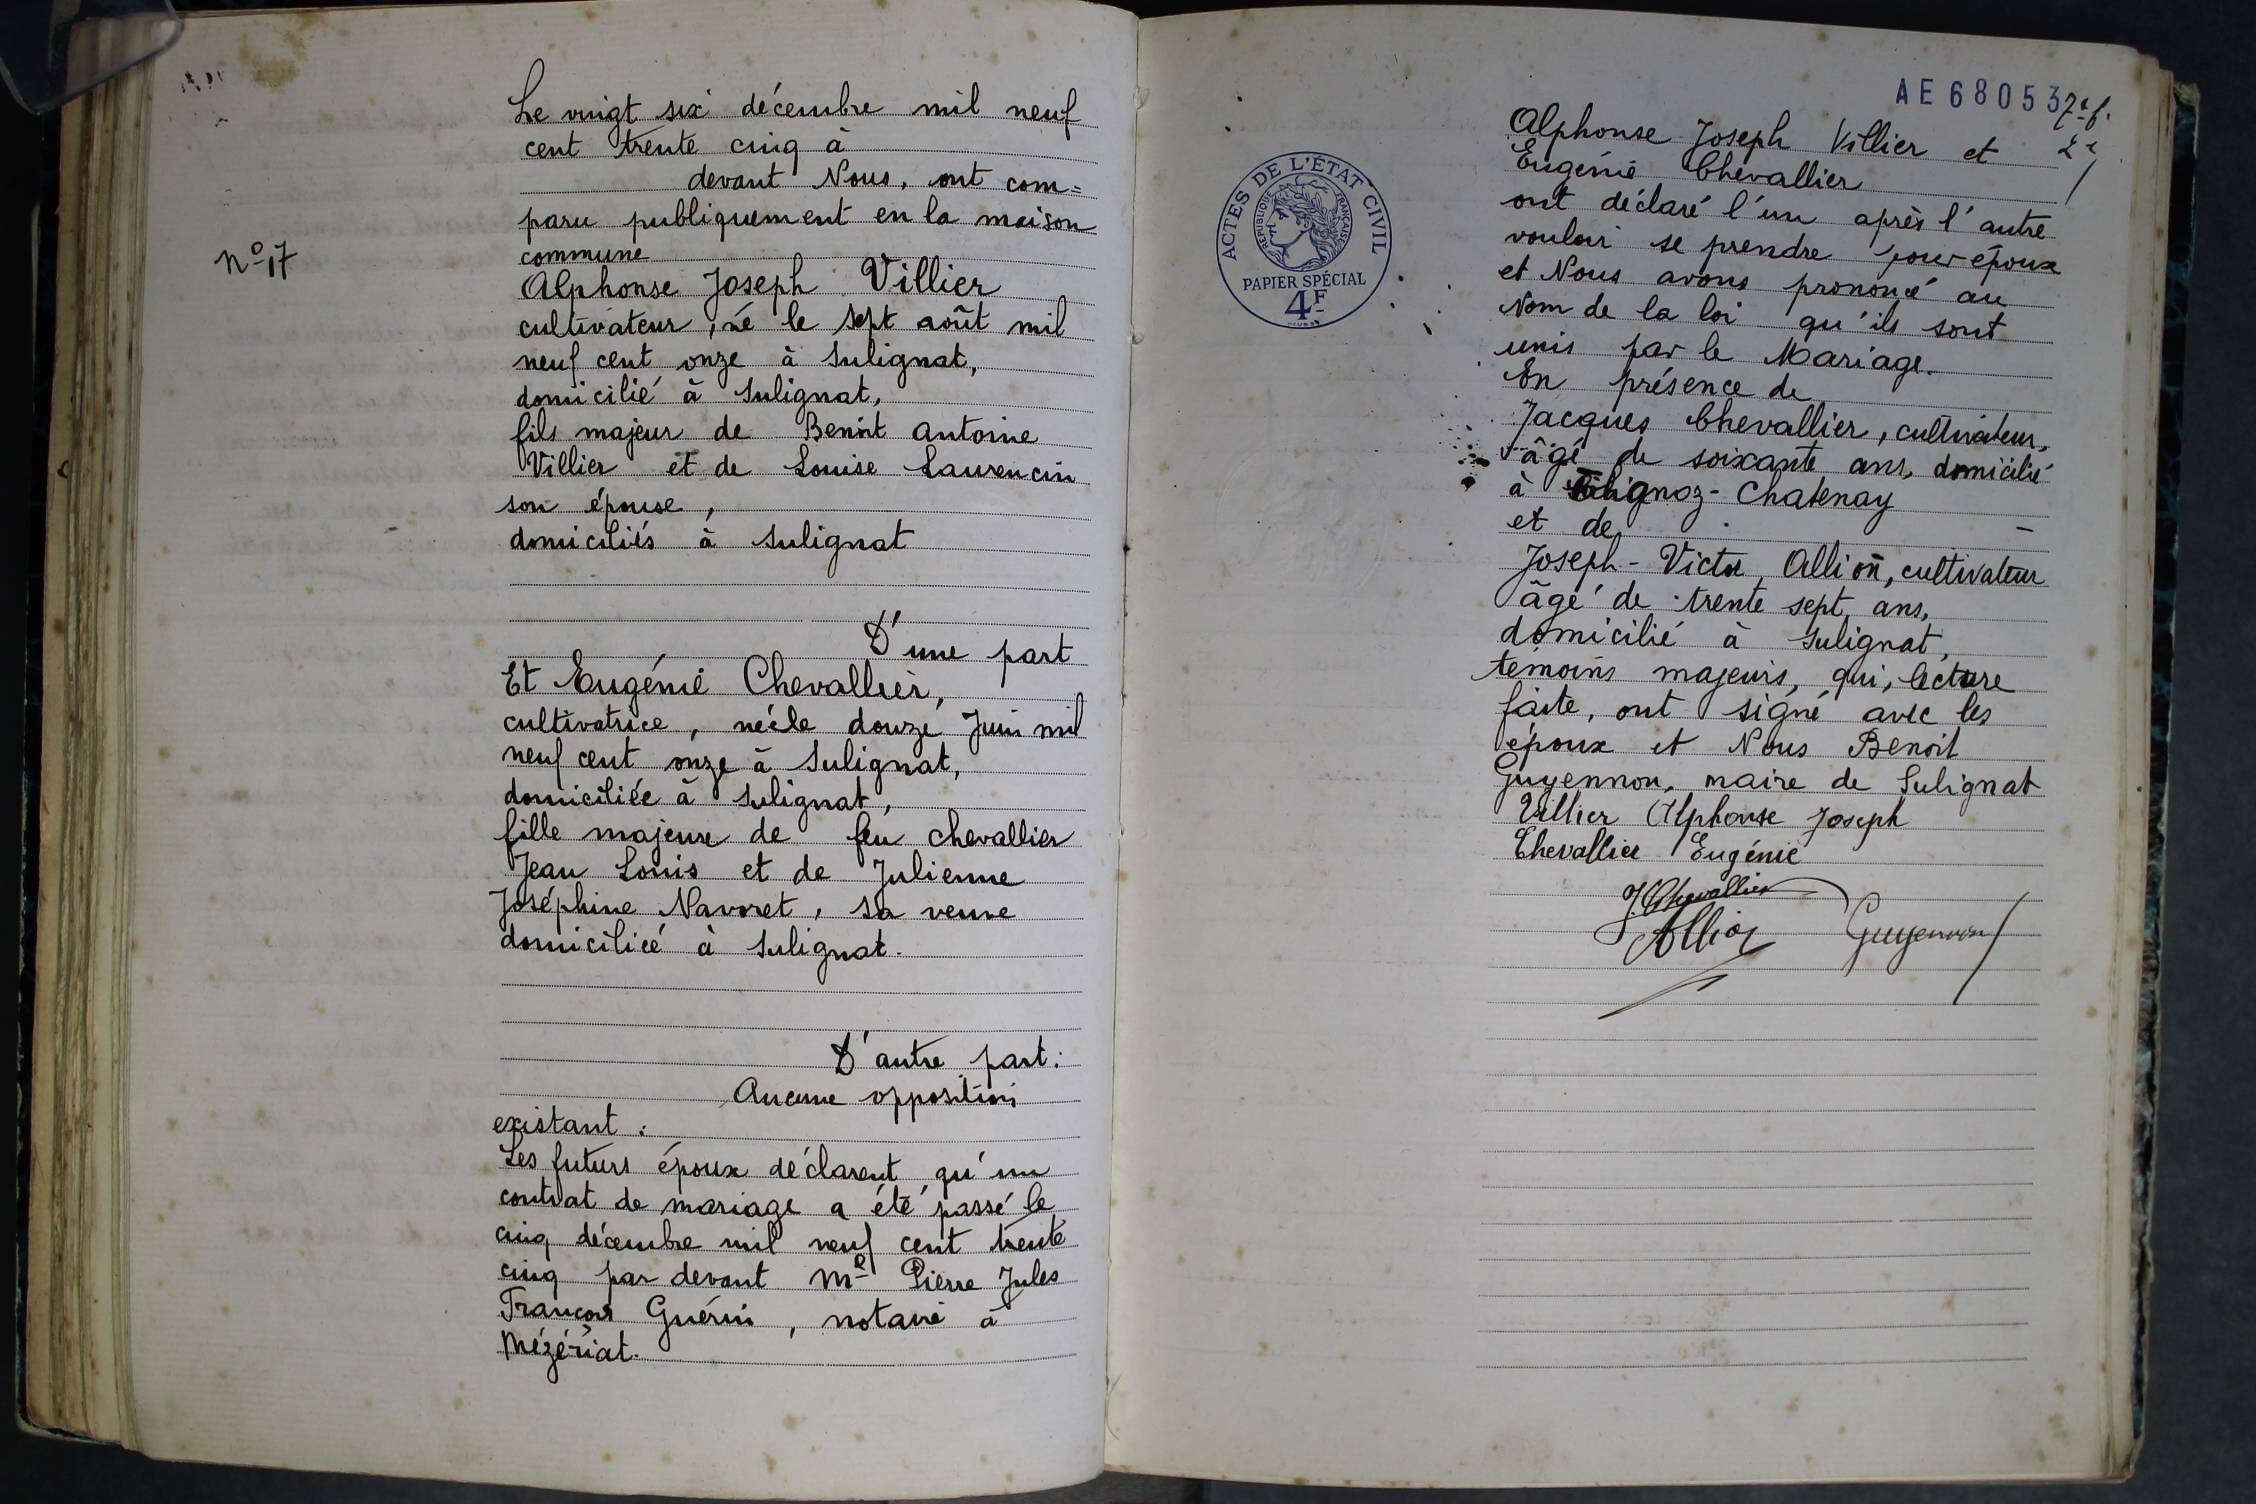 Le vingt six décembre mil neuf
cent trente cinq à
devant Nous, ont com=
paru publiquement en la maison
commune
n° 17
Alphonse Joseph Villier
cultivateur, né le sept août mil
neuf cent onze à Sulignat,
domicilié à Sulignat,
fils majeur de Benoit Antoine
Villier et de Louise Laurencin
son épouse,
domiciliés à Sulignat
D'une part
Et Eugénie Chevallier,
cultivatrice, née le douze Juin mil
neuf cent onze à Sulignat,
domiciliée à Sulignat,
fille majeure de feu Chevallier
Jean Louis et de Julienne
Joséphine Navoret, sa veuve
domiciliée à Sulignat.
D'autre part:
Aucune opposition
existant.
Les futurs époux déclarent qu'un
contrat de mariage a été passé le
cinq décembre mil neuf cent trente
cinq par devant Me Pierre Jules
François Guérin, notaire à
Mézériat.
AE 68053
7e f.
2e
ACTES DE L'ÉTAT CIVIL
RÉPUBLIQUE FRANÇAISE
PAPIER SPÉCIAL
4F
Alphonse Joseph Villier et
Eugénie Chevallier
ont déclaré l'un après l'autre
vouloir se prendre pour époux
et Nous avons prononcé au
Nom de la loi qu'ils sont
unis par le Mariage.
En présence de
Jacques Chevallier, cultivateur,
âgé de soixante ans, domicilié
à Chatenay
et de
Joseph-Victor Allion, cultivateur
âgé de trente sept ans,
domicilié à Sulignat,
témoins majeurs, qui, lecture
faite, ont signé avec les
époux et Nous Benoit
Guyennon, maire de Sulignat
Villier Alphonse Joseph
Chevallier Eugénie
J. Chevallier
Allion
Guyennon